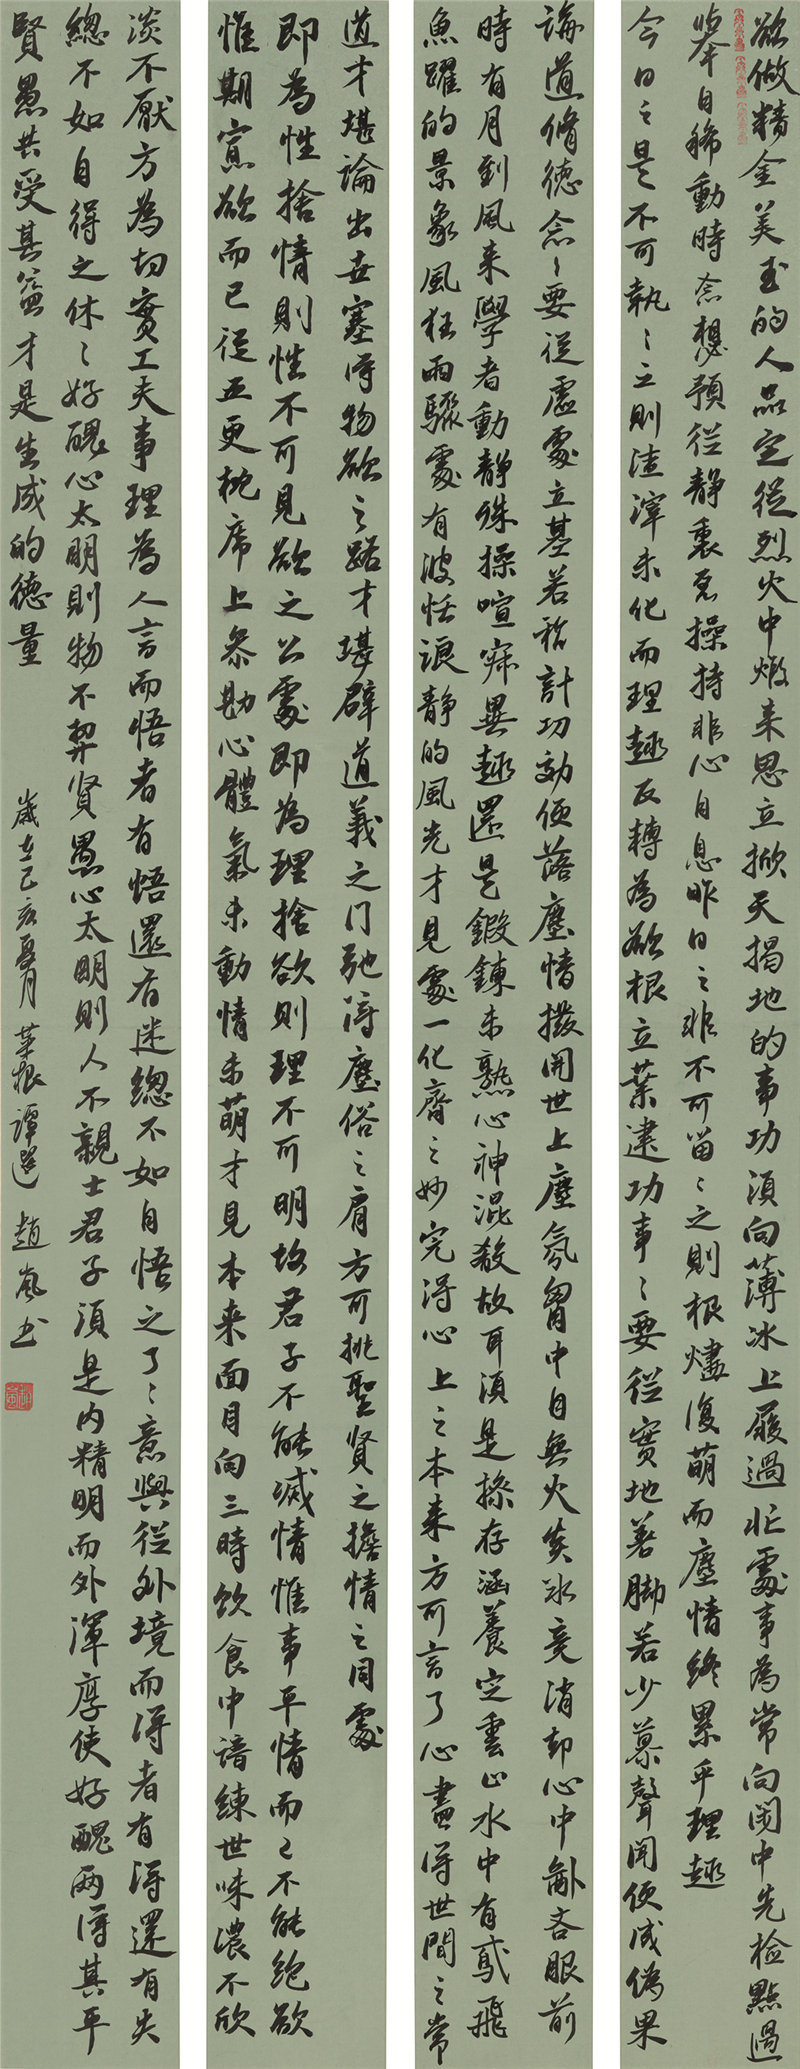 欲做精金美玉的人品定從烈火中煅来思立掀天揭地的事功須向薄冰上履過忙處事為常向閑中先检點過
舉自稀動時念想預從静裏密操持非心自息昨日之非不可留〻之則根燼復萌而塵情終累乎理趣
今日之是不可執〻之則渣滓未化而理趣反轉為欲根立業建功事〻要從實地著脚若少慕聲聞便成偽果
講道脩德念〻要從虚處立基若稍計功効便落塵情撥開世上塵氛胷中自無火炎冰竞消却心中鄙吝眼前
時有月到風来學者動静殊操喧寂異趣還是鍛鍊未熟心神混殽故耳須是操存涵養定雲止水中有鳶飛
魚躍的景象風狂雨驟處有波恬浪静的風光才見處一化齊之妙完得心上之本来方可言了心盡得世間之常
道才堪論出世塞得物欲之路才堪闢道義之门弛得塵俗之肩方可挑聖贤之擔情之同處
即為性捨情則性不可見欲之公處即為理捨欲則理不可明故君子不能滅情惟事平情而已不能绝欲
惟期寡欲而已從五更枕席上参勘心體氣未動情未萌才見本来面目向三時飲食中諳練世味濃不欣
淡不厭方為切實工夫事理為人言而悟者有悟還有迷總不如自悟之了〻意興從外境而得者有得還有失
總不如自得之休〻好醜心太明則物不契贤愚心太明則人不親士君子須是内精明而外渾厚使好醜两得其平
賢愚共受其益才是生成的德量
歲在己亥夏月菜根譚選 趙嵐书